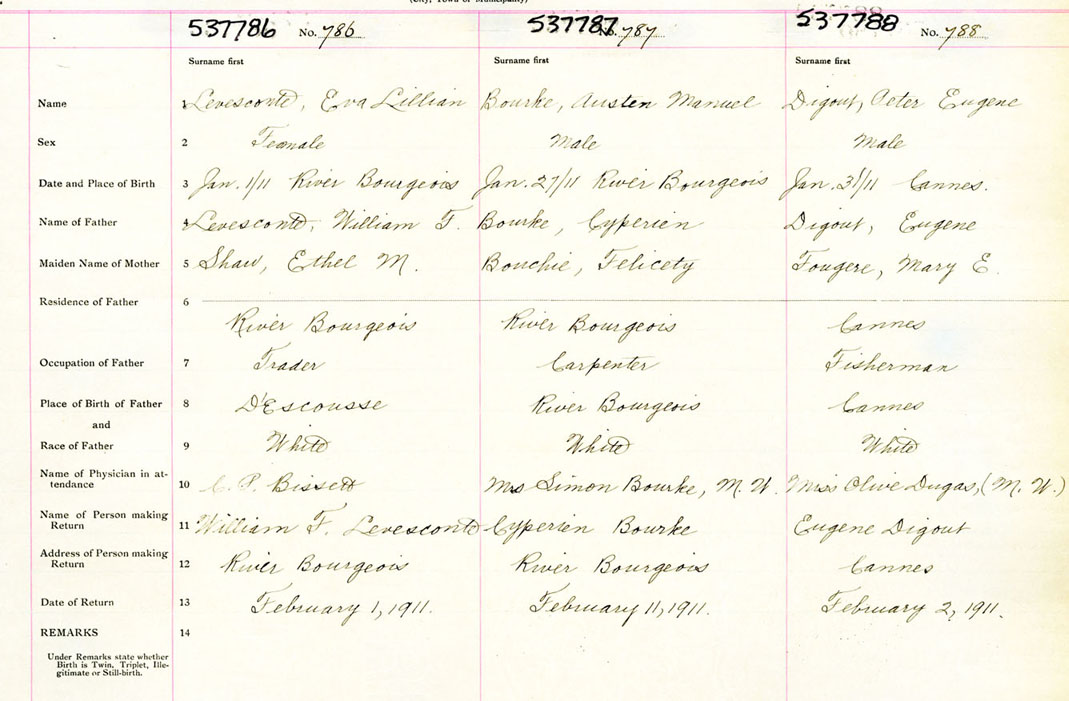 (City, Town or Municipality)
537786 No. 786 537787 No. 787 537788 No. 788
Surname first Surname first Surname first
Name 1 Levesconte, Eva Lillian Bourke, Austen Manuel Digout, Peter Eugene
Sex 2 Female Male Male
Date and Place of Birth 3 Jan. 1/11 River Bourgeois Jan. 27/11 River Bourgeois Jan. 31/11 Cannes.
Name of Father 4 Levesconte, William F. Bourke, Cyperien Digout, Eugene
Maiden Name of Mother 5 Shaw, Ethel M. Bouchie, Felicety Fougere, Mary E.
Residence of Father 6
River Bourgeois River Bourgeois Cannes
Occupation of Father 7 Trader Carpenter Fisherman
Place of Birth of Father 8 D'Escousse River Bourgeois Cannes
and
Race of Father 9 White White White
Name of Physician in at-
tendance 10 C. P. Bissett Mrs Simon Bourke, M. W. Miss Olive Dugas, (M. W.)
Name of Person making
Return 11 William F. Levesconte Cyperien Bourke Eugene Digout
Address of Person making
Return 12 River Bourgeois River Bourgeois Cannes
Date of Return 13 February 1, 1911. February 11, 1911. February 2, 1911.
REMARKS 14
Under Remarks state whether
Birth is Twin, Triplet, Ille-
gitimate or Still-birth.